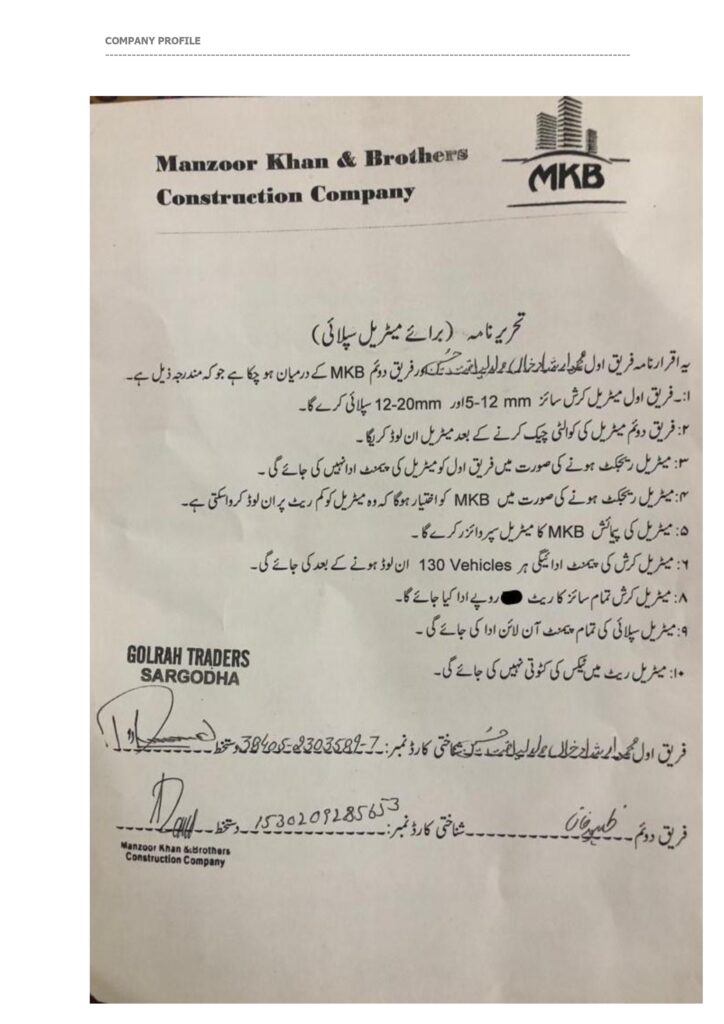 COMPANY PROFILE
Manzoor Khan & Brothers
Construction Company
MKB
تحریر نامہ (برائے میٹریل سپلائی)
یہ اقرار نامہ فریق اول محمد ارشاد خان ولد لیاقت حسین اور فریق دوئم MKB کے درمیان ہو چکا ہے جو کہ مندرجہ ذیل ہے۔
۱:۔ فریق اول میٹریل کرش سائز 5-12 mm اور 12-20mm سپلائی کرے گا۔
۲: فریق دوئم میٹریل کی کوالٹی چیک کرنے کے بعد میٹریل ان لوڈ کریگا۔
۳: میٹریل ریجکٹ ہونے کی صورت میں فریق اول کو میٹریل کی پیمنٹ ادا نہیں کی جائے گی۔
۴: میٹریل ریجکٹ ہونے کی صورت میں MKB کو اختیار ہوگا کہ وہ میٹریل کو کم ریٹ پر ان لوڈ کرواسکتی ہے۔
۵: میٹریل کی پیائش MKB کا میٹریل سپروائزر کرے گا۔
۶: میٹریل کرش کی پیمنٹ ادائیگی ہر 130 Vehicles ان لوڈ ہونے کے بعد کی جائے گی۔
۸: میٹریل کرش تمام سائز کا ریٹ روپے ادا کیا جائے گا۔
۹: میٹریل سپلائی کی تمام پیمنٹ آن لائن ادا کی جائے گی۔
۱۰: میٹریل ریٹ میں ٹیکس کی کٹوتی نہیں کی جائے گی۔
GOLRAH TRADERS
SARGODHA
فریق اول محمد ارشاد خان ولد لیاقت حسین شناختی کارڈ نمبر: 38405-2303589-7 دستخط
فریق دوئم ظہید خان شناختی کارڈ نمبر: 1530209285653 دستخط
Manzoor Khan & Brothers
Construction Company